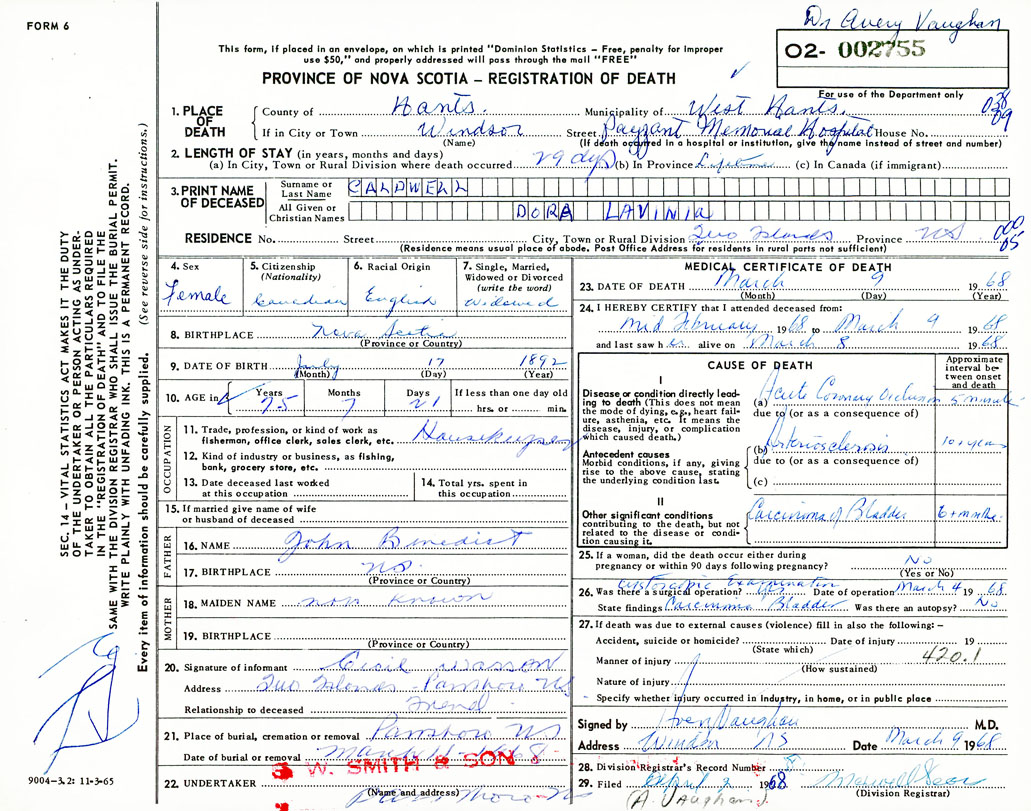 FORM 6
Dr Avery Vaughan
This form, if placed in an envelope, on which is printed "Dominion Statistics – Free, penalty for improper
use $50," and properly addressed will pass through the mail "FREE"
02- 002755
PROVINCE OF NOVA SCOTIA – REGISTRATION OF DEATH
For use of the Department only
1. PLACE OF DEATH County of Hants. Municipality of West Hants.
If in City or Town Windsor Street Payzant Memorial Hospital House No.
(Name) (If death occurred in a hospital or institution, give the name instead of street and number)
2. LENGTH OF STAY (in years, months and days)
(a) In City, Town or Rural Division where death occurred 29 dys (b) In Province Lifetime (c) In Canada (if immigrant)
3. PRINT NAME OF DECEASED Surname or Last Name CALDWELL
All Given or Christian Names DORA LAVINIA
RESIDENCE No. Street City, Town or Rural Division Two Islands Province NS
(Residence means usual place of abode. Post Office Address for residents in rural parts not sufficient)
4. Sex Female
5. Citizenship (Nationality) Canadian
6. Racial Origin English
7. Single, Married, Widowed or Divorced (write the word) Widowed
8. BIRTHPLACE Nova Scotia
(Province or Country)
9. DATE OF BIRTH 17 1892
(Month) (Day) (Year)
10. AGE in Years 75 Months 7 Days 21 If less than one day old
hrs. or min.
OCCUPATION
11. Trade, profession, or kind of work as
fisherman, office clerk, sales clerk, etc. Housekeeper
12. Kind of industry or business, as fishing,
bank, grocery store, etc.
13. Date deceased last worked
at this occupation
14. Total yrs. spent in
this occupation
15. If married give name of wife
or husband of deceased
FATHER
16. NAME John Benedict
17. BIRTHPLACE NS.
(Province or Country)
MOTHER
18. MAIDEN NAME not known
19. BIRTHPLACE
(Province or Country)
20. Signature of informant Wasson
Address Two Islands Parrsboro NS
Relationship to deceased Friend
21. Place of burial, cremation or removal Parrsboro NS
Date of burial or removal March
22. UNDERTAKER W. SMITH & SON
(Name and address)
MEDICAL CERTIFICATE OF DEATH
23. DATE OF DEATH March 9 1968
(Month) (Day) (Year)
24. I HEREBY CERTIFY that I attended deceased from:
mid February 1968 to March 9 1968
and last saw her alive on March 8 1968
CAUSE OF DEATH
Approximate interval between onset and death
I
Disease or condition directly leading to death (This does not mean the mode of dying, e.g., heart failure, asthenia, etc. It means the disease, injury, or complication which caused death.)
(a) Acute Coronary Occlusion 5 minutes
due to (or as a consequence of)
Antecedent causes
Morbid conditions, if any, giving rise to the above cause, stating the underlying condition last.
(b) Arteriosclerosis 10+ years
due to (or as a consequence of)
(c)
II
Other significant conditions
contributing to the death, but not related to the disease or condition causing it.
Carcinoma of Bladder 6+ months.
25. If a woman, did the death occur either during
pregnancy or within 90 days following pregnancy? No
(Yes or No)
Cystoscopic Examination
26. Was there a surgical operation? yes Date of operation March 4 1968
State findings Carcinoma Bladder Was there an autopsy? No
27. If death was due to external causes (violence) fill in also the following: –
Accident, suicide or homicide? Date of injury 19
(State which)
420.1
Manner of injury
(How sustained)
Nature of injury
Specify whether injury occurred in industry, in home, or in public place
Signed by Avery Vaughan M.D.
Address Windsor NS Date March 9 1968
28. Division Registrar's Record Number
29. Filed April 2 1968
(Division Registrar)
(A. Vaughan)
SEC. 14 – VITAL STATISTICS ACT MAKES IT THE DUTY
OF THE UNDERTAKER OR PERSON ACTING AS UNDER-
TAKER TO OBTAIN ALL THE PARTICULARS REQUIRED
IN THE "REGISTRATION OF DEATH" AND TO FILE THE
SAME WITH THE DIVISION REGISTRAR WHO SHALL ISSUE THE BURIAL PERMIT.
WRITE PLAINLY WITH UNFADING INK. THIS IS A PERMANENT RECORD.
Every item of information should be carefully supplied. (See reverse side for instructions.)
9004–3.2: 11-3-65